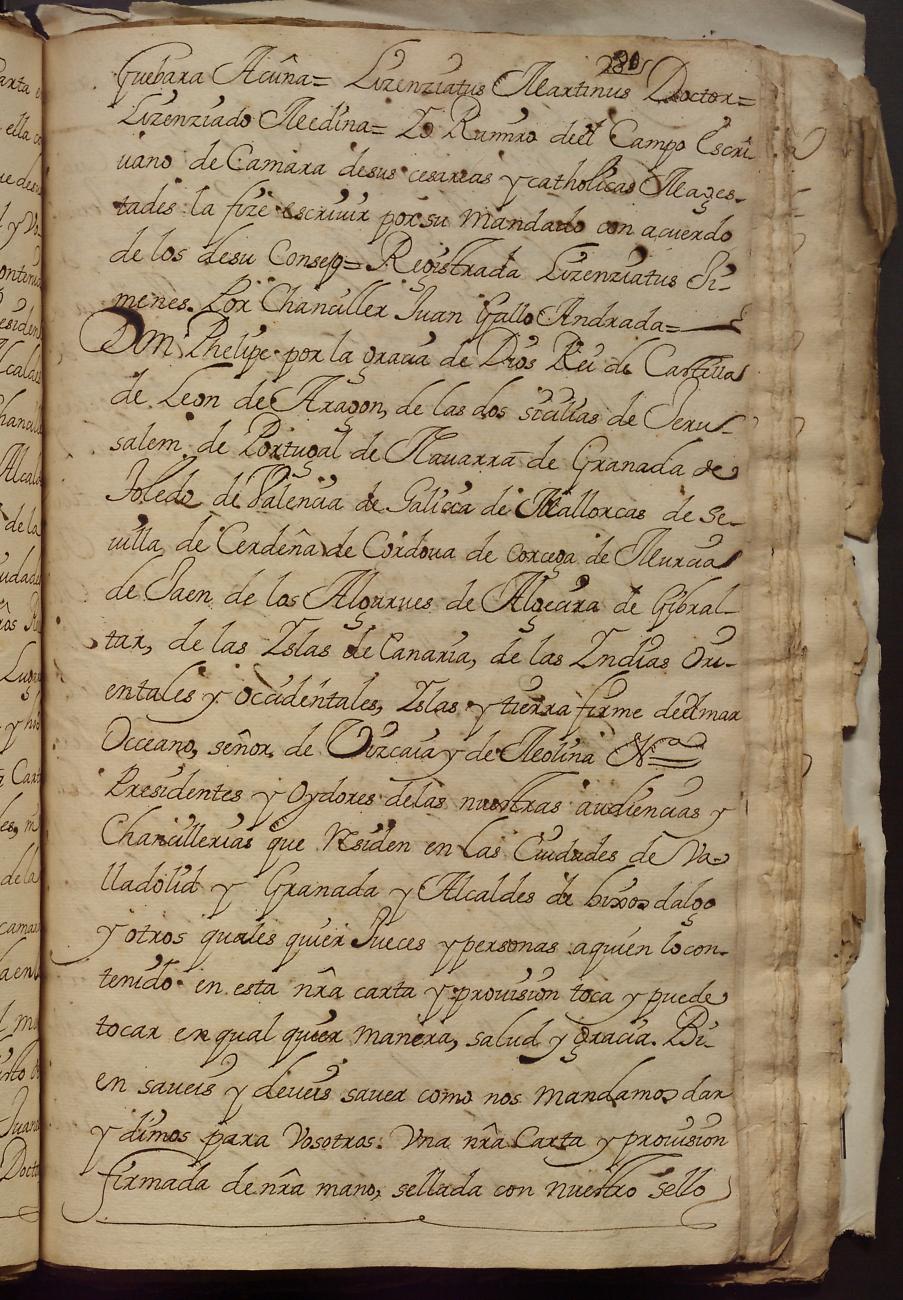 280
Guebara Acuña= Lizenziatus Martinus Doctor=
Lizenziado Medina= Yo Ramiro deel Campo Escri-
uano de Camara desus cesareas y catholicas Mages-
tades la fize escriuir por su mandado con acuerdo
de los desu Consejo= Registrada Lizenziatus Si-
menes. Por Chanciller Juan Gallo Andrada=
Don Phelipe por la gracia de Dios Rei de Castilla
de Leon de Aragon, de las dos sicilias de Jeru-
salem, de Portugal de Nauarra de Granada de
Toledo de Valencia de Galicia de Mallorcas de Se-
uilla, de Cerdeña de Cordoua de Corcega de Murcia
de Jaen, de los Algarues de Algecira de Gibral-
tar, de las Yslas de Canaria, de las Yndias Ori-
entales y Occidentales, Yslas y tierra firme deel mar
Occeano, señor de Vizcaia y de Molina
Presidentes y Oydores delas nuestras audiencias y
Chancillerias que Residen en las Ciudades de Va-
lladolid y Granada y Alcaldes de hixos dalgo
y otros quales quier Jueces y personas aquien lo con-
tenido en esta nrã carta y prouision toca y puede
tocar en qual quier manera, salud y gracia. Bi-
en saueis y deueis sauer como nos mandamos dar
y dimos para Vosotros. Vna nrã Carta y prouision
firmada de nrã mano, sellada con nuestro sello